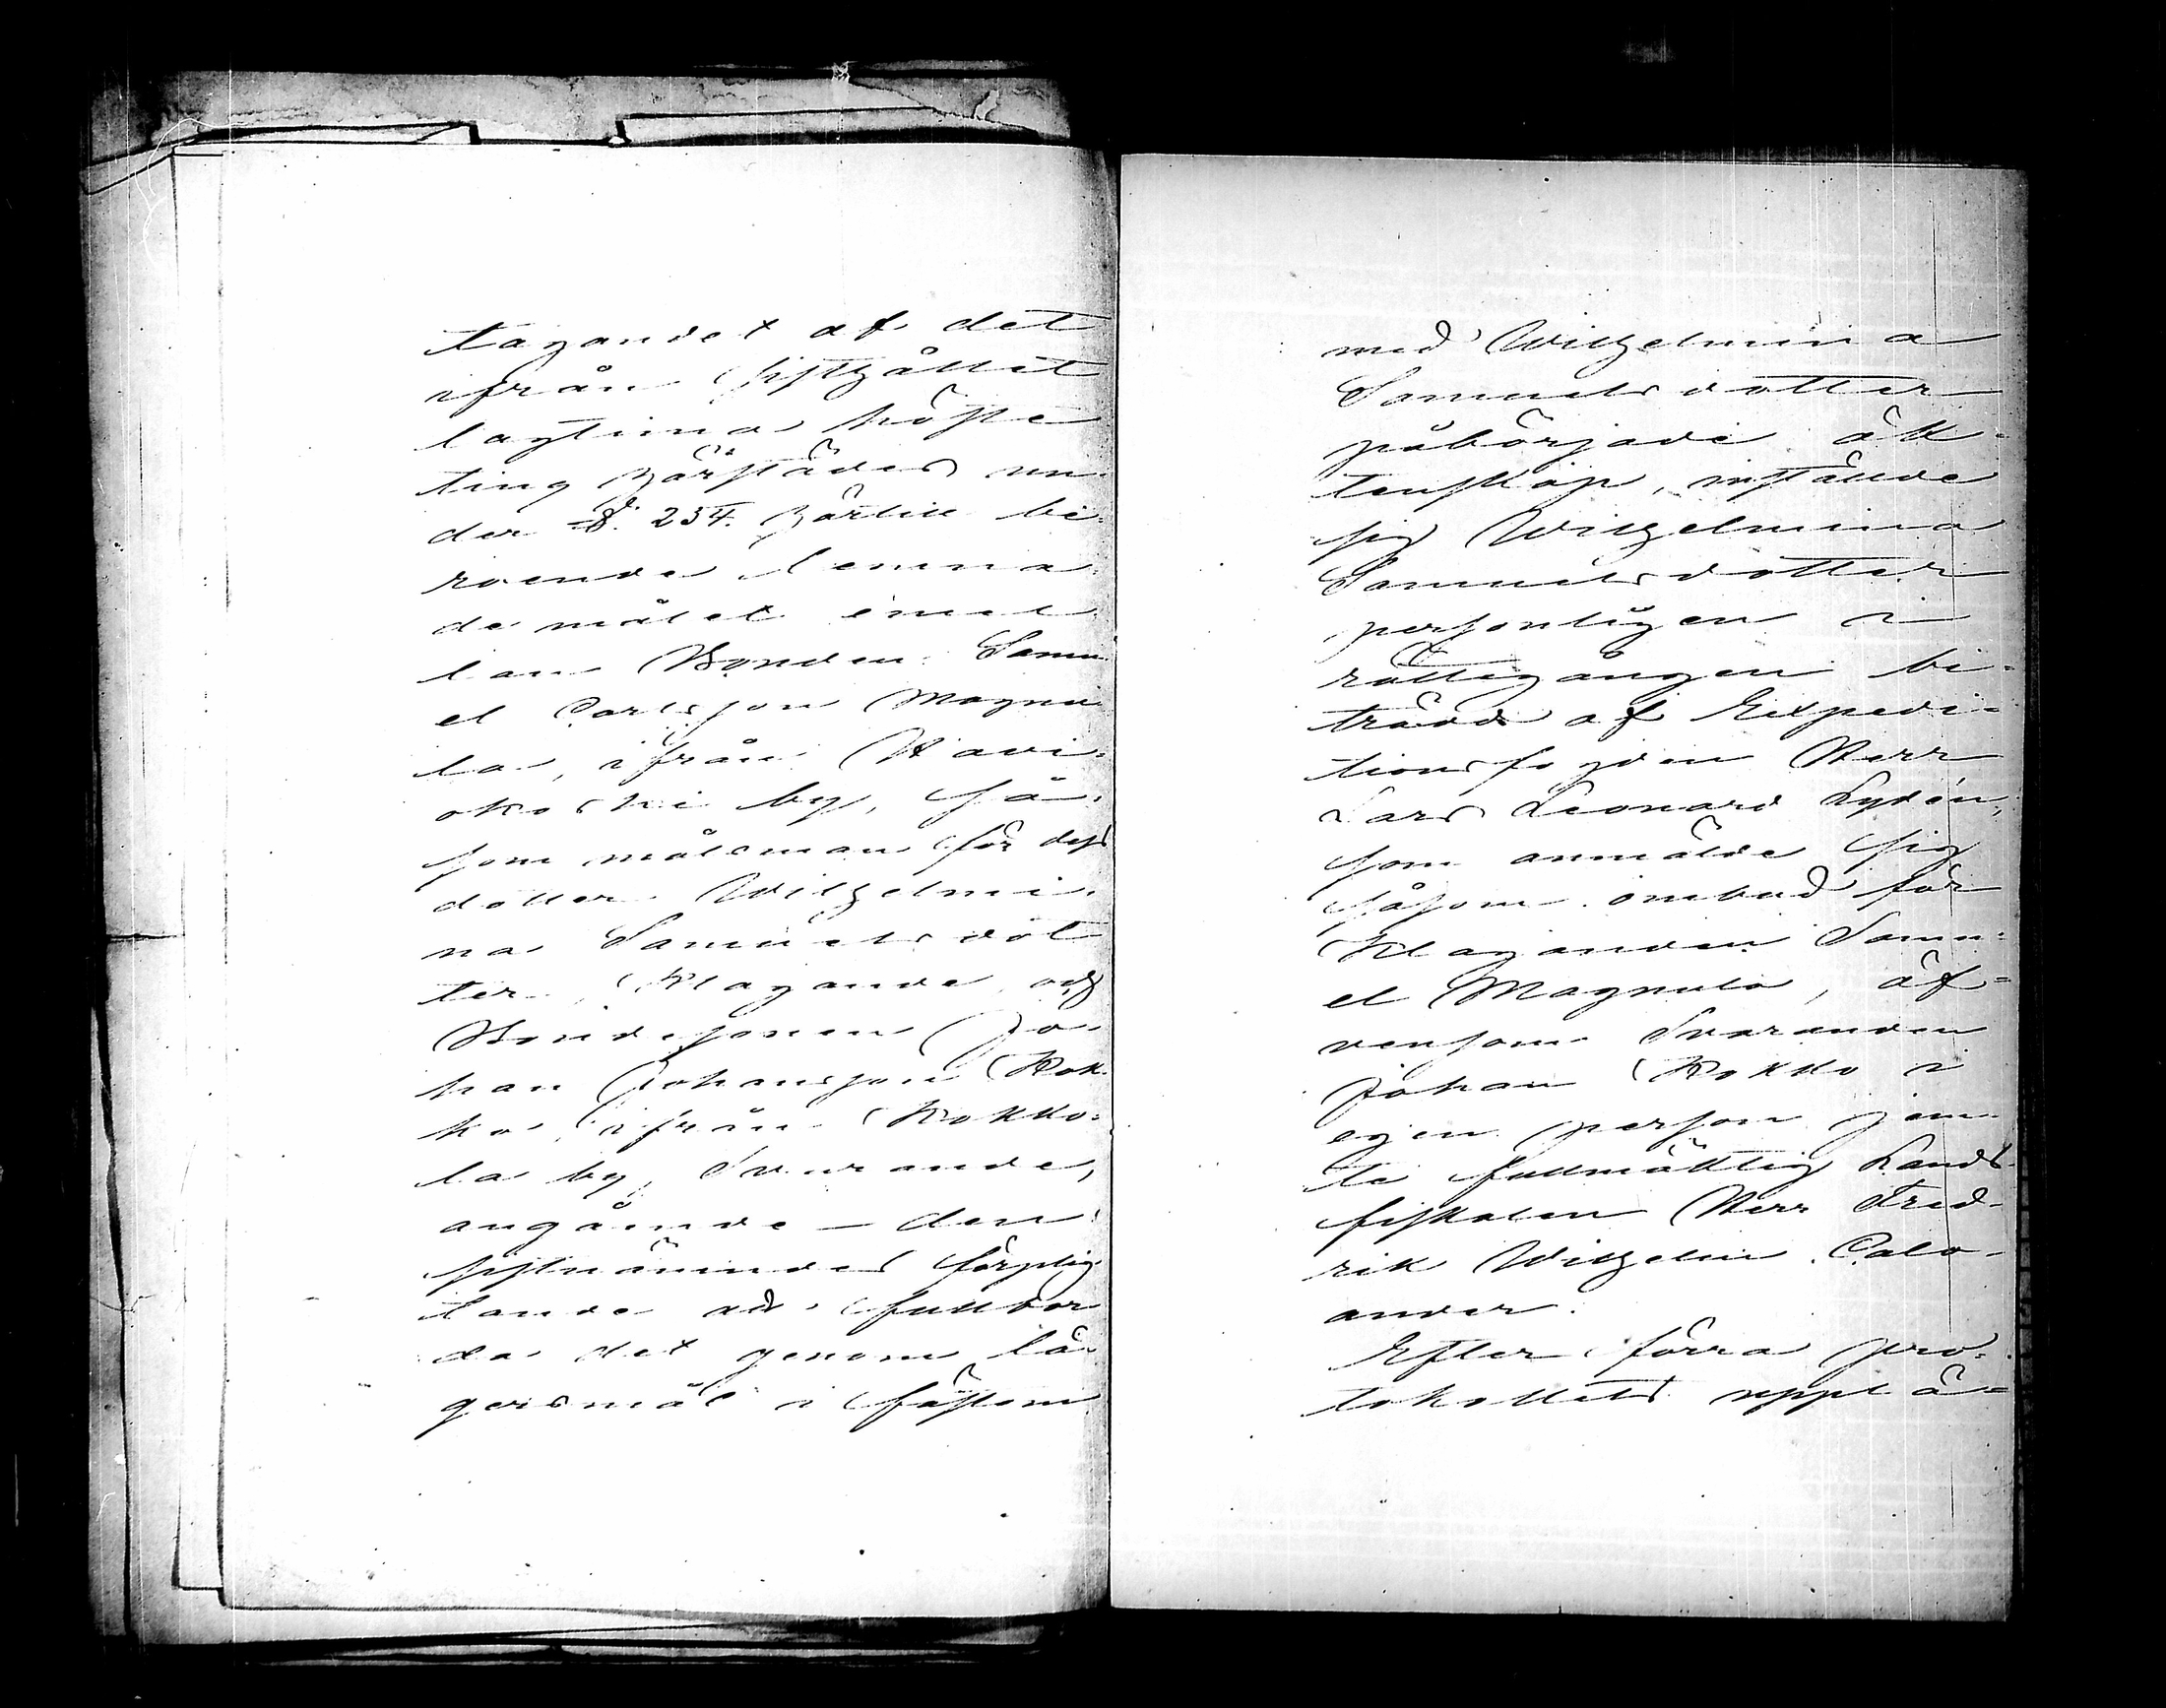 tagandet af det
ifrån sisthållit
lagtima höste
ting härstädes un
der §. 254. härtill be
roende lemna
de målet emel
lan Bonden Samu
el Carlsson Magnu
la, ifrån Havi
okoski by, så
som målsman för dess
dotter Wilhelmi
na Samuelsdot
ter, Klagande, och
Bondesonen Jo
han Johansson Kok
ko, ifrån Kokko
la by, Svarande,
angående den
sistnämndes förplig
tande ad fullbor
da det genom lä
gersmål i fästom
med Wilhelmina
Samuelsdotter
påbörjade äk-
tenskap, inställde
sig Wilhelmina
Samuelsdotter
personligen i
rättegången bi-
trädd af Expedi-
tionsfogden Herr
Lars Leonard Lydén,
som anmälde sig
såsom ombud för
Klaganden Samu-
el Magnula, äf-
vensom Svaranden
Johan Kokko i
egen person jem
te fullmäktig Lands-
fiskalen Herr Fred-
rik Wilhelm Calo-
ander.
Efter förra pro-
tokollets upplä-